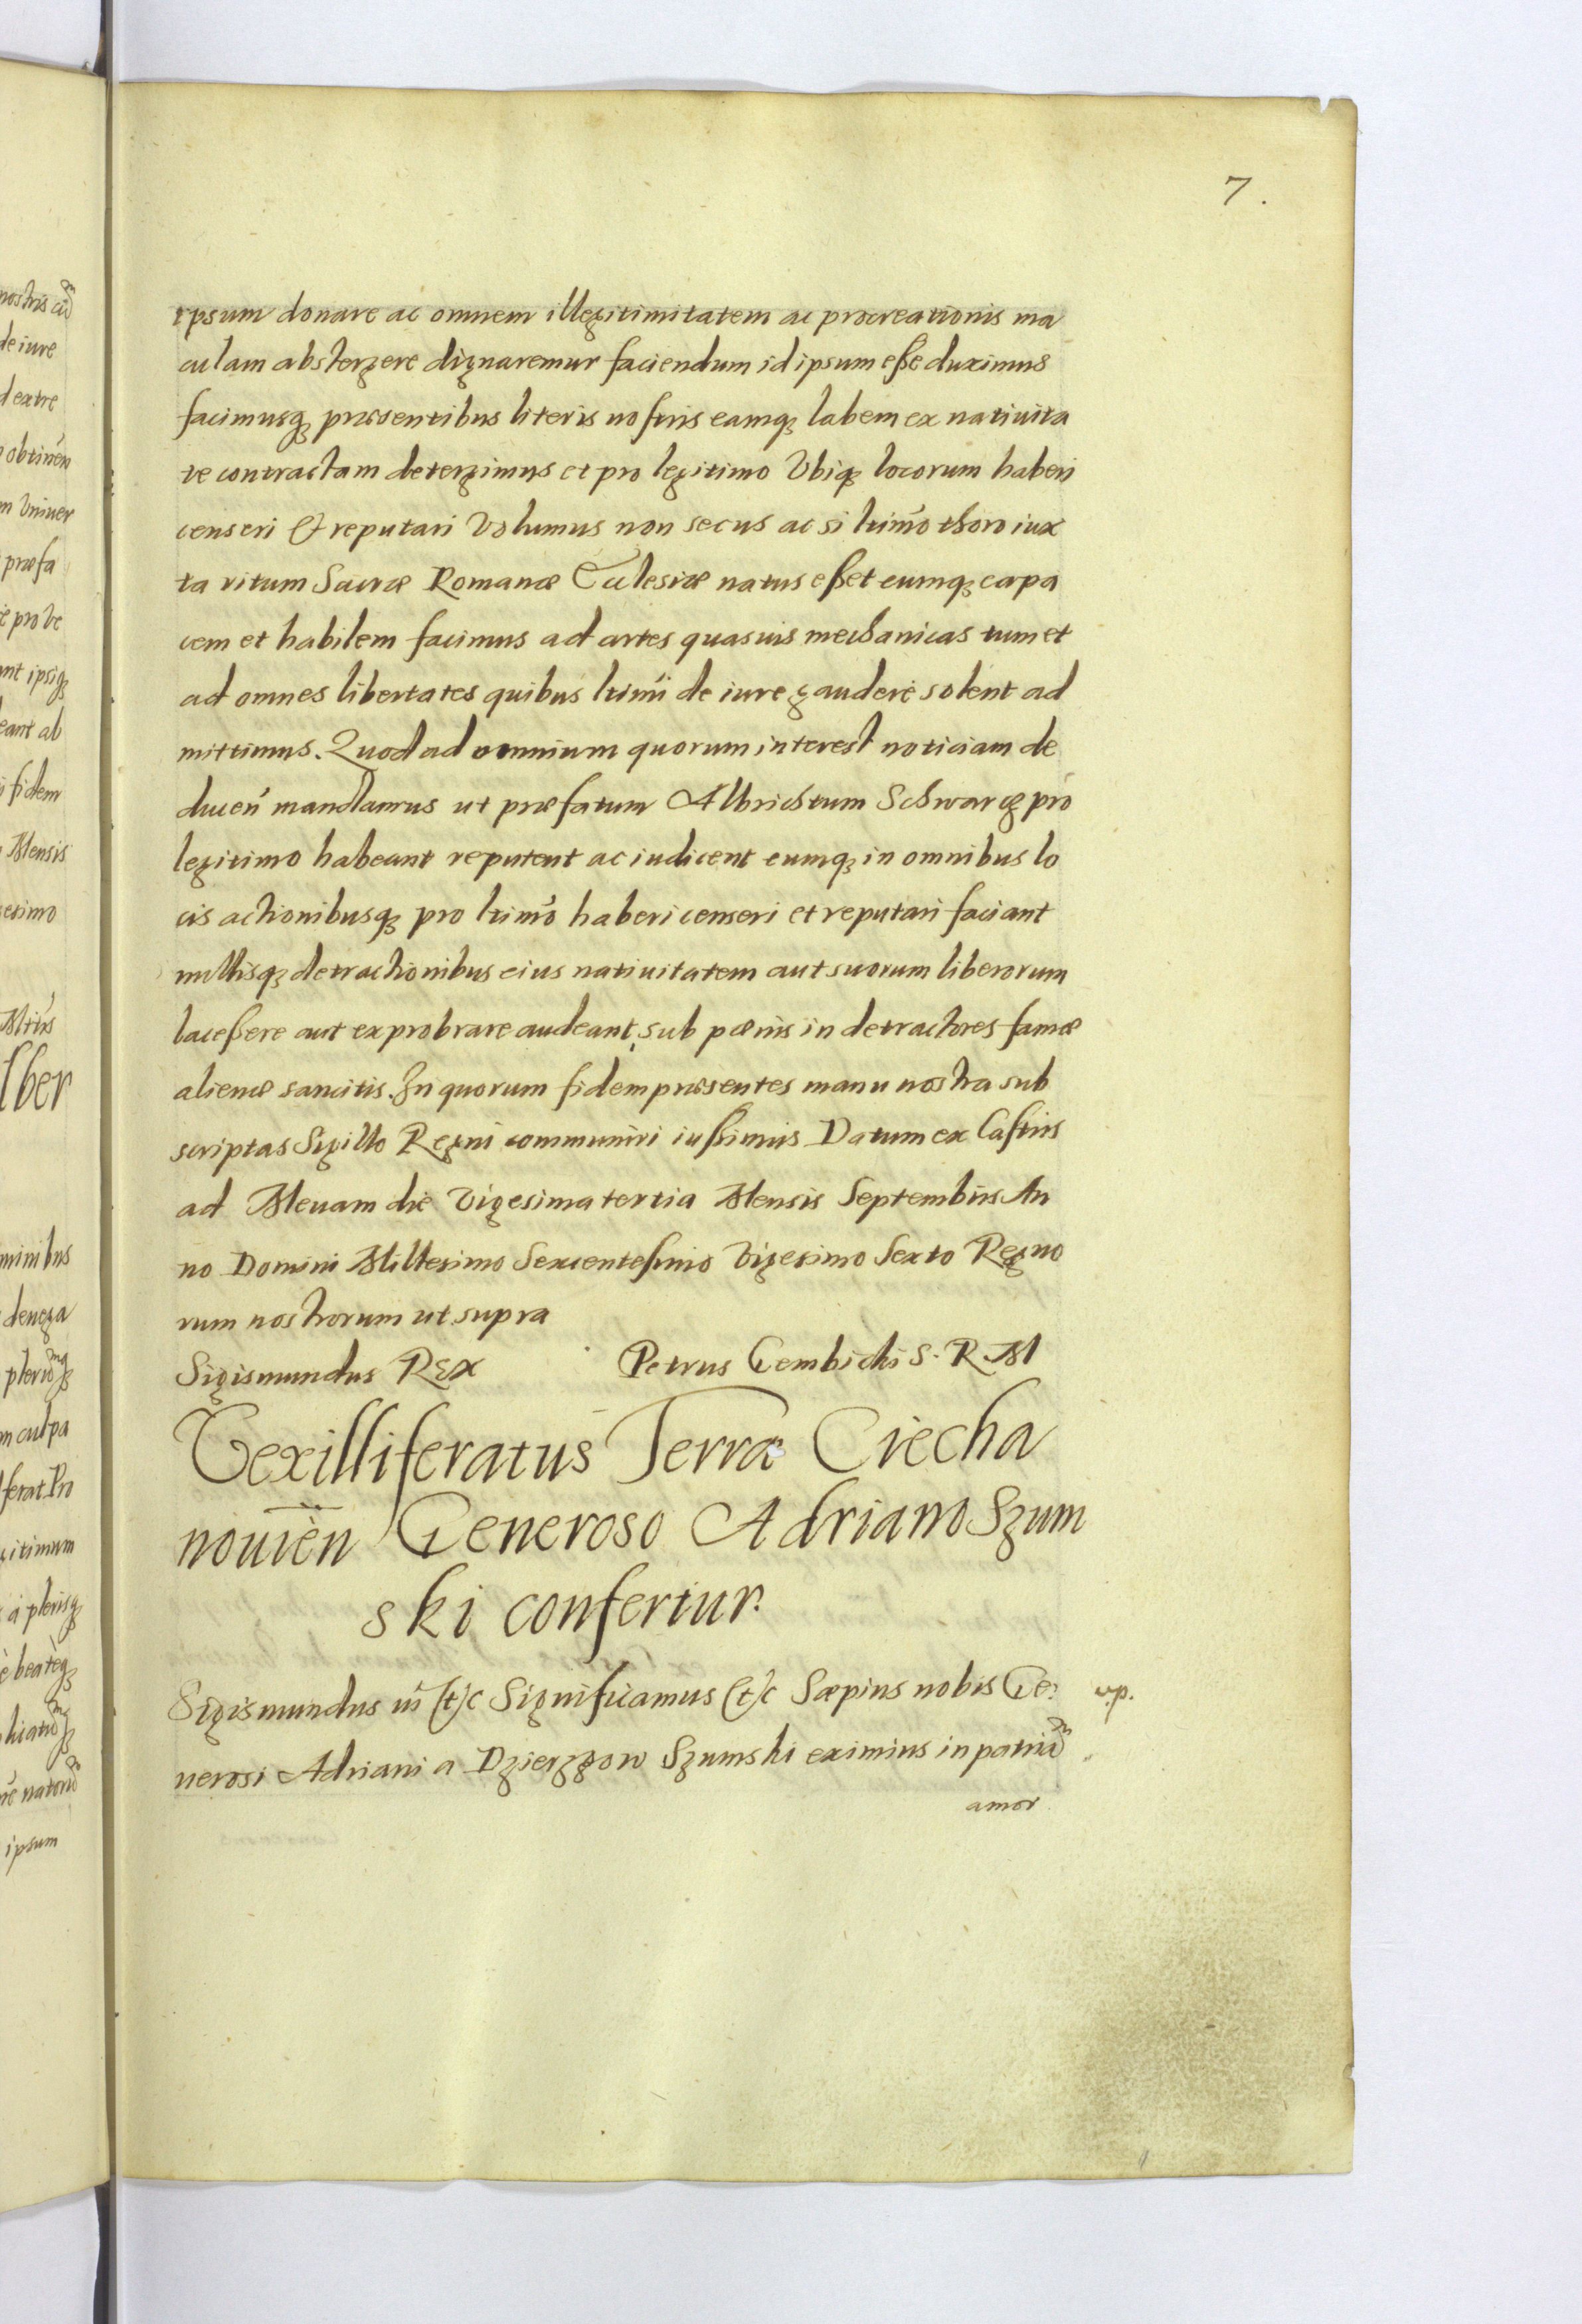 7.
ipsum donare ac omnem illegitimitatem ac procreationis ma
culam abstergere dignaremur faciendum id ipsum eße duximus
facimusq₃ præsentibus literis nostris eamq₃ labem ex natiuita
te contractam detergimus et pro legitimo Vbiq₃ locorum haberi
censeri & reputari Volumus non secus ac si ltimo thoro iux
ta ritum Sacræ Romanæ Ecclesiæ natus eßet eumq₃ capa
cem et habilem facimus ad artes quasuis mechanicas tum et
ad omnes libertates quibus ltimi de iure gaudere solent ad
mittimus. Quod ad omnium quorum interest noticiam de
ducen̄ mandamus ut præfatum Albrichtum Schwarcz pro
legitimo habeant reputent ac iudicent eumq₃ in omnibus lo
cis actionibusq₃ pro ltimo haberi censeri et reputari faciant
nullisq₃ detractionibus eius natiuitatem aut suorum liberorum
laceßere aut exprobrare audeant, sub pœnis in detractores famæ
alienæ sancitis. In quorum fidem præsentes manu nostra sub
scriptas Sigillo Regni communiri iußimus Datum ex Castris
ad Meuam die Vigesima tertia Mensis Septembris An
no Domini Millesimo Sexcentesimo Vigesimo Sexto Regno
rum nostrorum ut supra
Sigismundus Rex Petrus Gembicki S. R. M
Vexilliferatus Terræ Ciecha
nouien̄ Generoso Adriano Szum
ski confertur.
Sigismundus iii (t)c Significamus (t)c Sæpius nobis Ge: v.p.
nerosi Adriani a Dzierzgow Szumski eximius in patriā
amor